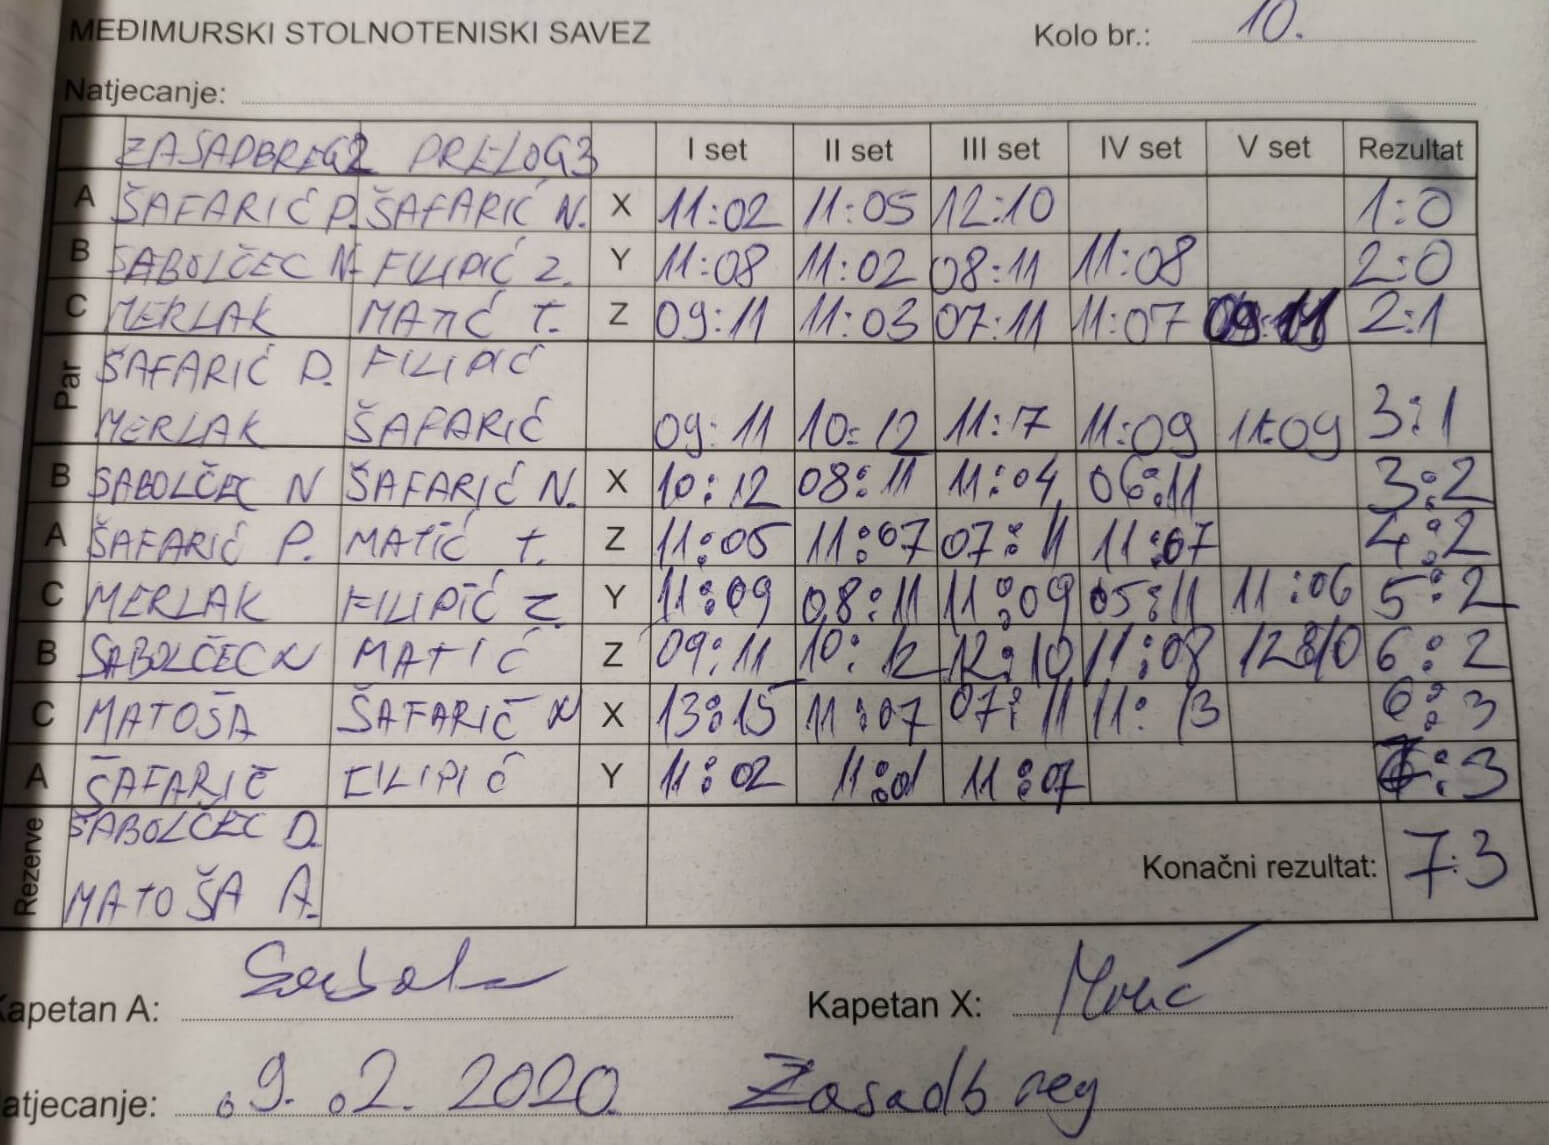 MEĐIMURSKI STOLNOTENISKI SAVEZ Kolo br.: 10.
Natjecanje:
ZASADBREG2 PRELOG3 I set II set III set IV set V set Rezultat
A ŠAFARIĆ P. ŠAFARIĆ N. X 11:02 11:05 12:10 1:0
B SABOLČEC N. FILIPIĆ Z. Y 11:08 11:02 08:11 11:08 2:0
C MERLAK MATIĆ T. Z 09:11 11:03 07:11 11:07 09:11 2:1
Par ŠAFARIĆ P. FILIPIĆ
MERLAK ŠAFARIĆ 09:11 10:12 11:7 11:09 11:09 3:1
B SABOLČEC N ŠAFARIĆ N. X 10:12 08:11 11:04 06:11 3:2
A ŠAFARIĆ P. MATIĆ T. Z 11:05 11:07 07:11 11:07 4:2
C MERLAK FILIPIĆ Z. Y 11:09 08:11 11:09 05:11 11:06 5:2
B SABOLČEC N MATIĆ Z 09:11 10:12 12:10 11:08 12:10 6:2
C MATOŠA ŠAFARIĆ N X 13:15 11:07 07:11 11:13 6:3
A ŠAFARIĆ FILIPIĆ Y 11:02 11:01 11:07 7:3
Rezerve SABOLČEC D.
MATOŠA A. Konačni rezultat: 7:3
Kapetan A: Kapetan X:
Natjecanje: 09.02.2020. Zasadbreg